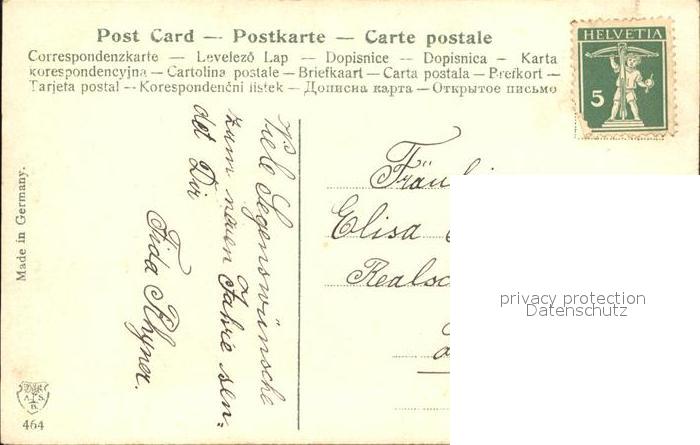 Post Card — Postkarte — Carte postale
Correspondenzkarte — Levelező Lap — Dopisnice — Dopisnica — Karta
korespondencyjna — Cartolina postale — Briefkaart — Carta postala — Prefkort —
Tarjeta postal — Korespondenční listek — Дописна карта — Открытое письмо
HELVETIA
5
Made in Germany.
Viele Segenswünsche
zum neuen Jahre sen=
det Dir
Frida Rhyner.
Fräul
Elisa
Realsc
privacy protection
Datenschutz
464